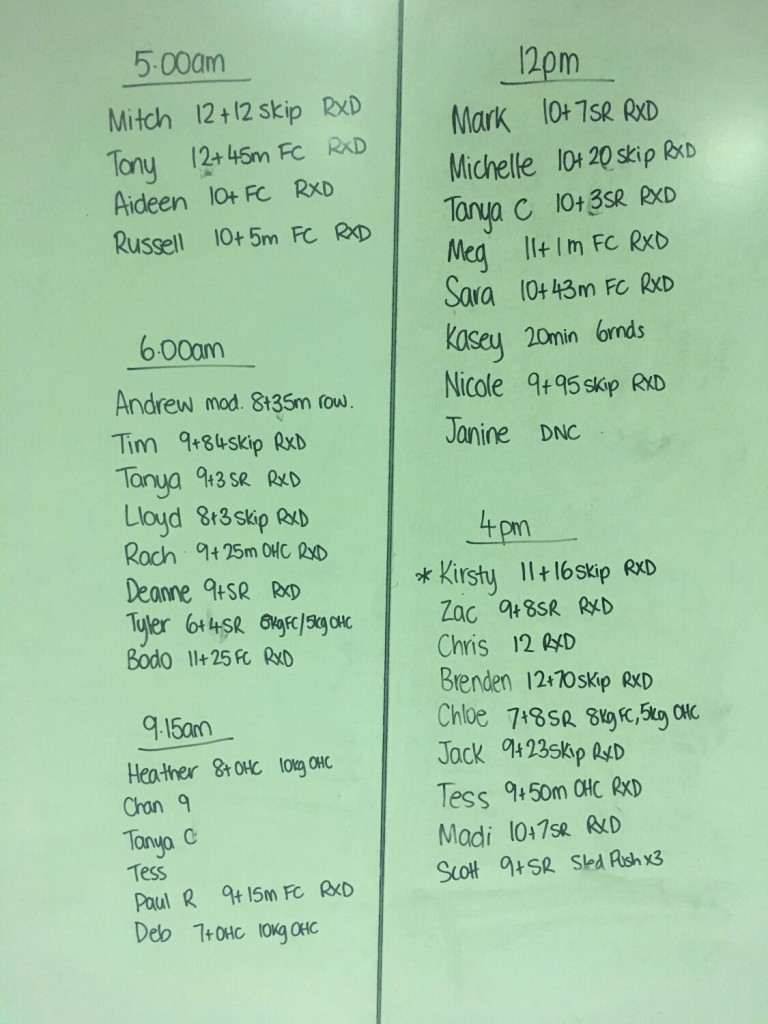 5.00am
Mitch 12+12 skip RXD
Tony 12+45m FC RXD
Aideen 10+ FC RXD
Russell 10+5m FC RXD
6.00am
Andrew mod. 8+35m row.
Tim 9+84skip RXD
Tanya 9+3 SR RXD
Lloyd 8+3 skip RXD
Rach 9+25m OHC RXD
Deanne 9+SR RXD
Tyler 6+4SR 8kgFC/5kg OHC
Bodo 11+25 FC RXD
9.15am
Heather 8+OHC 10kg OHC
Chan 9
Tanya C
Tess
Paul R 9+15m FC RXD
Deb 7+OHC 10kg OHC
12pm
Mark 10+7SR RXD
Michelle 10+20 skip RXD
Tanya C 10+3SR RXD
Meg 11+1m FC RXD
Sara 10+43m FC RXD
Kasey 20min 6rnds
Nicole 9+95 skip RXD
Janine DNC
4pm
* Kirsty 11+16skip RXD
Zac 9+8SR RXD
Chris 12 RXD
Brenden 12+70skip RXD
Chloe 7+8SR 8kgFC, 5kg OHC
Jack 9+23skip RXD
Tess 9+50m OHC RXD
Madi 10+7SR RXD
Scott 9+SR Sled Push x3